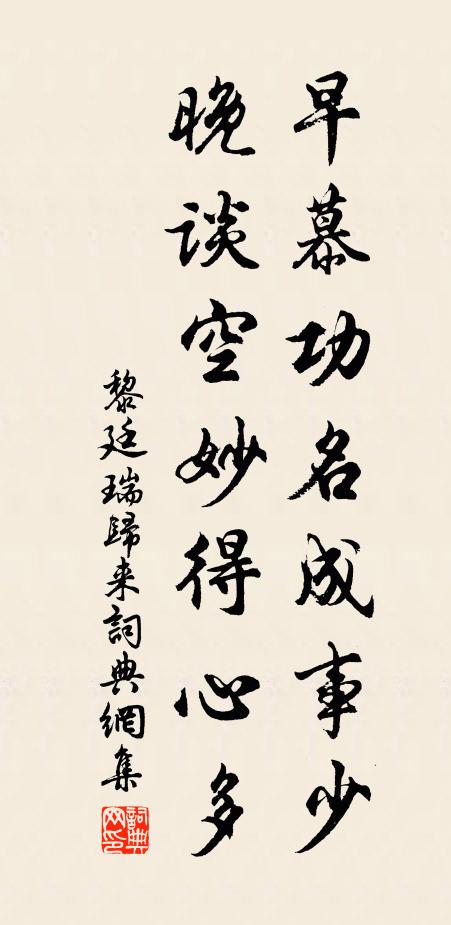 早慕功名成事少
晚谈空妙得心多
黎廷瑞歸来詞典網集
詞典
网印